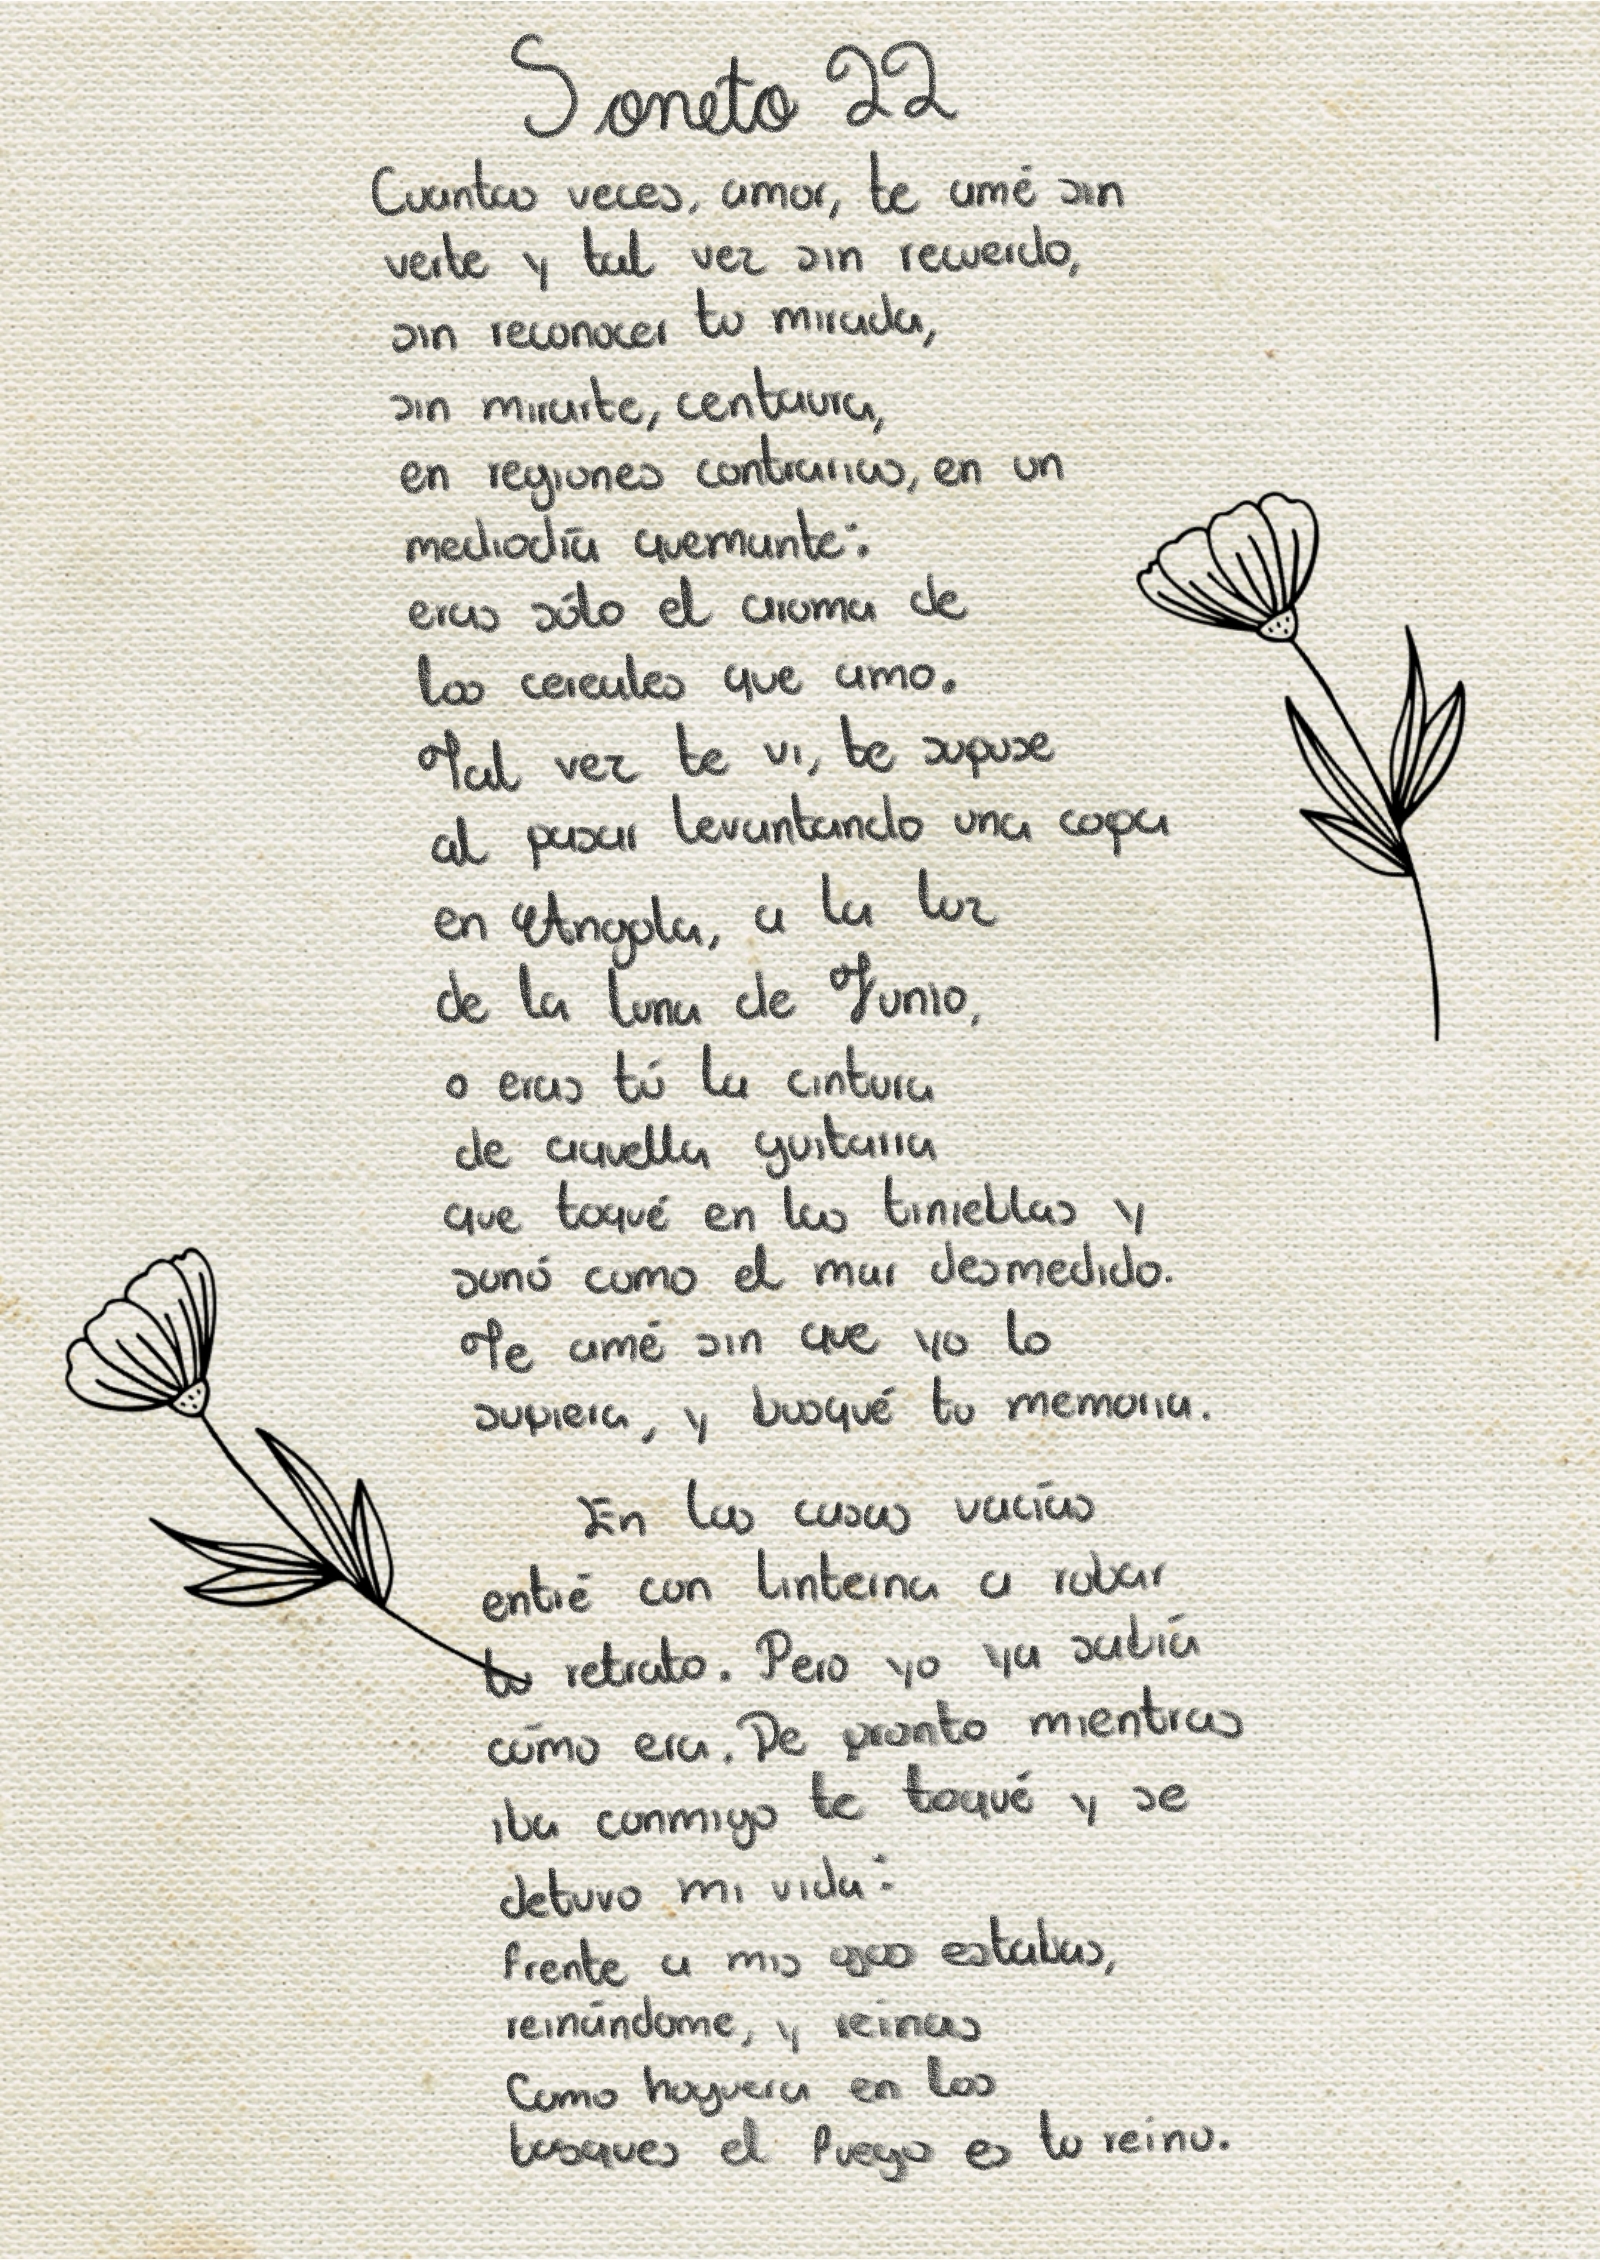 Soneto 22
Cuantas veces, amor, te amé sin
verte y tal vez sin recuerdo,
sin reconocer tu mirada,
sin mirarte, centaura,
en regiones contrarias, en un
mediodía quemante:
eras sólo el aroma de
los cereales que amo.
Tal vez te vi, te supuse
al pasar levantando una copa
en Angola, a la luz
de la luna de Junio,
o eras tú la cintura
de aquella guitarra
que toqué en las tinieblas y
sonó como el mar desmedido.
Te amé sin que yo lo
supiera, y busqué tu memoria.
En las casas vacías
entré con linterna a robar
tu retrato. Pero yo ya sabía
cómo era. De pronto mientras
iba conmigo te toqué y se
detuvo mi vida:
frente a mis ojos estabas,
reinándome, y reinas
Como hoguera en los
bosques el fuego es tu reino.